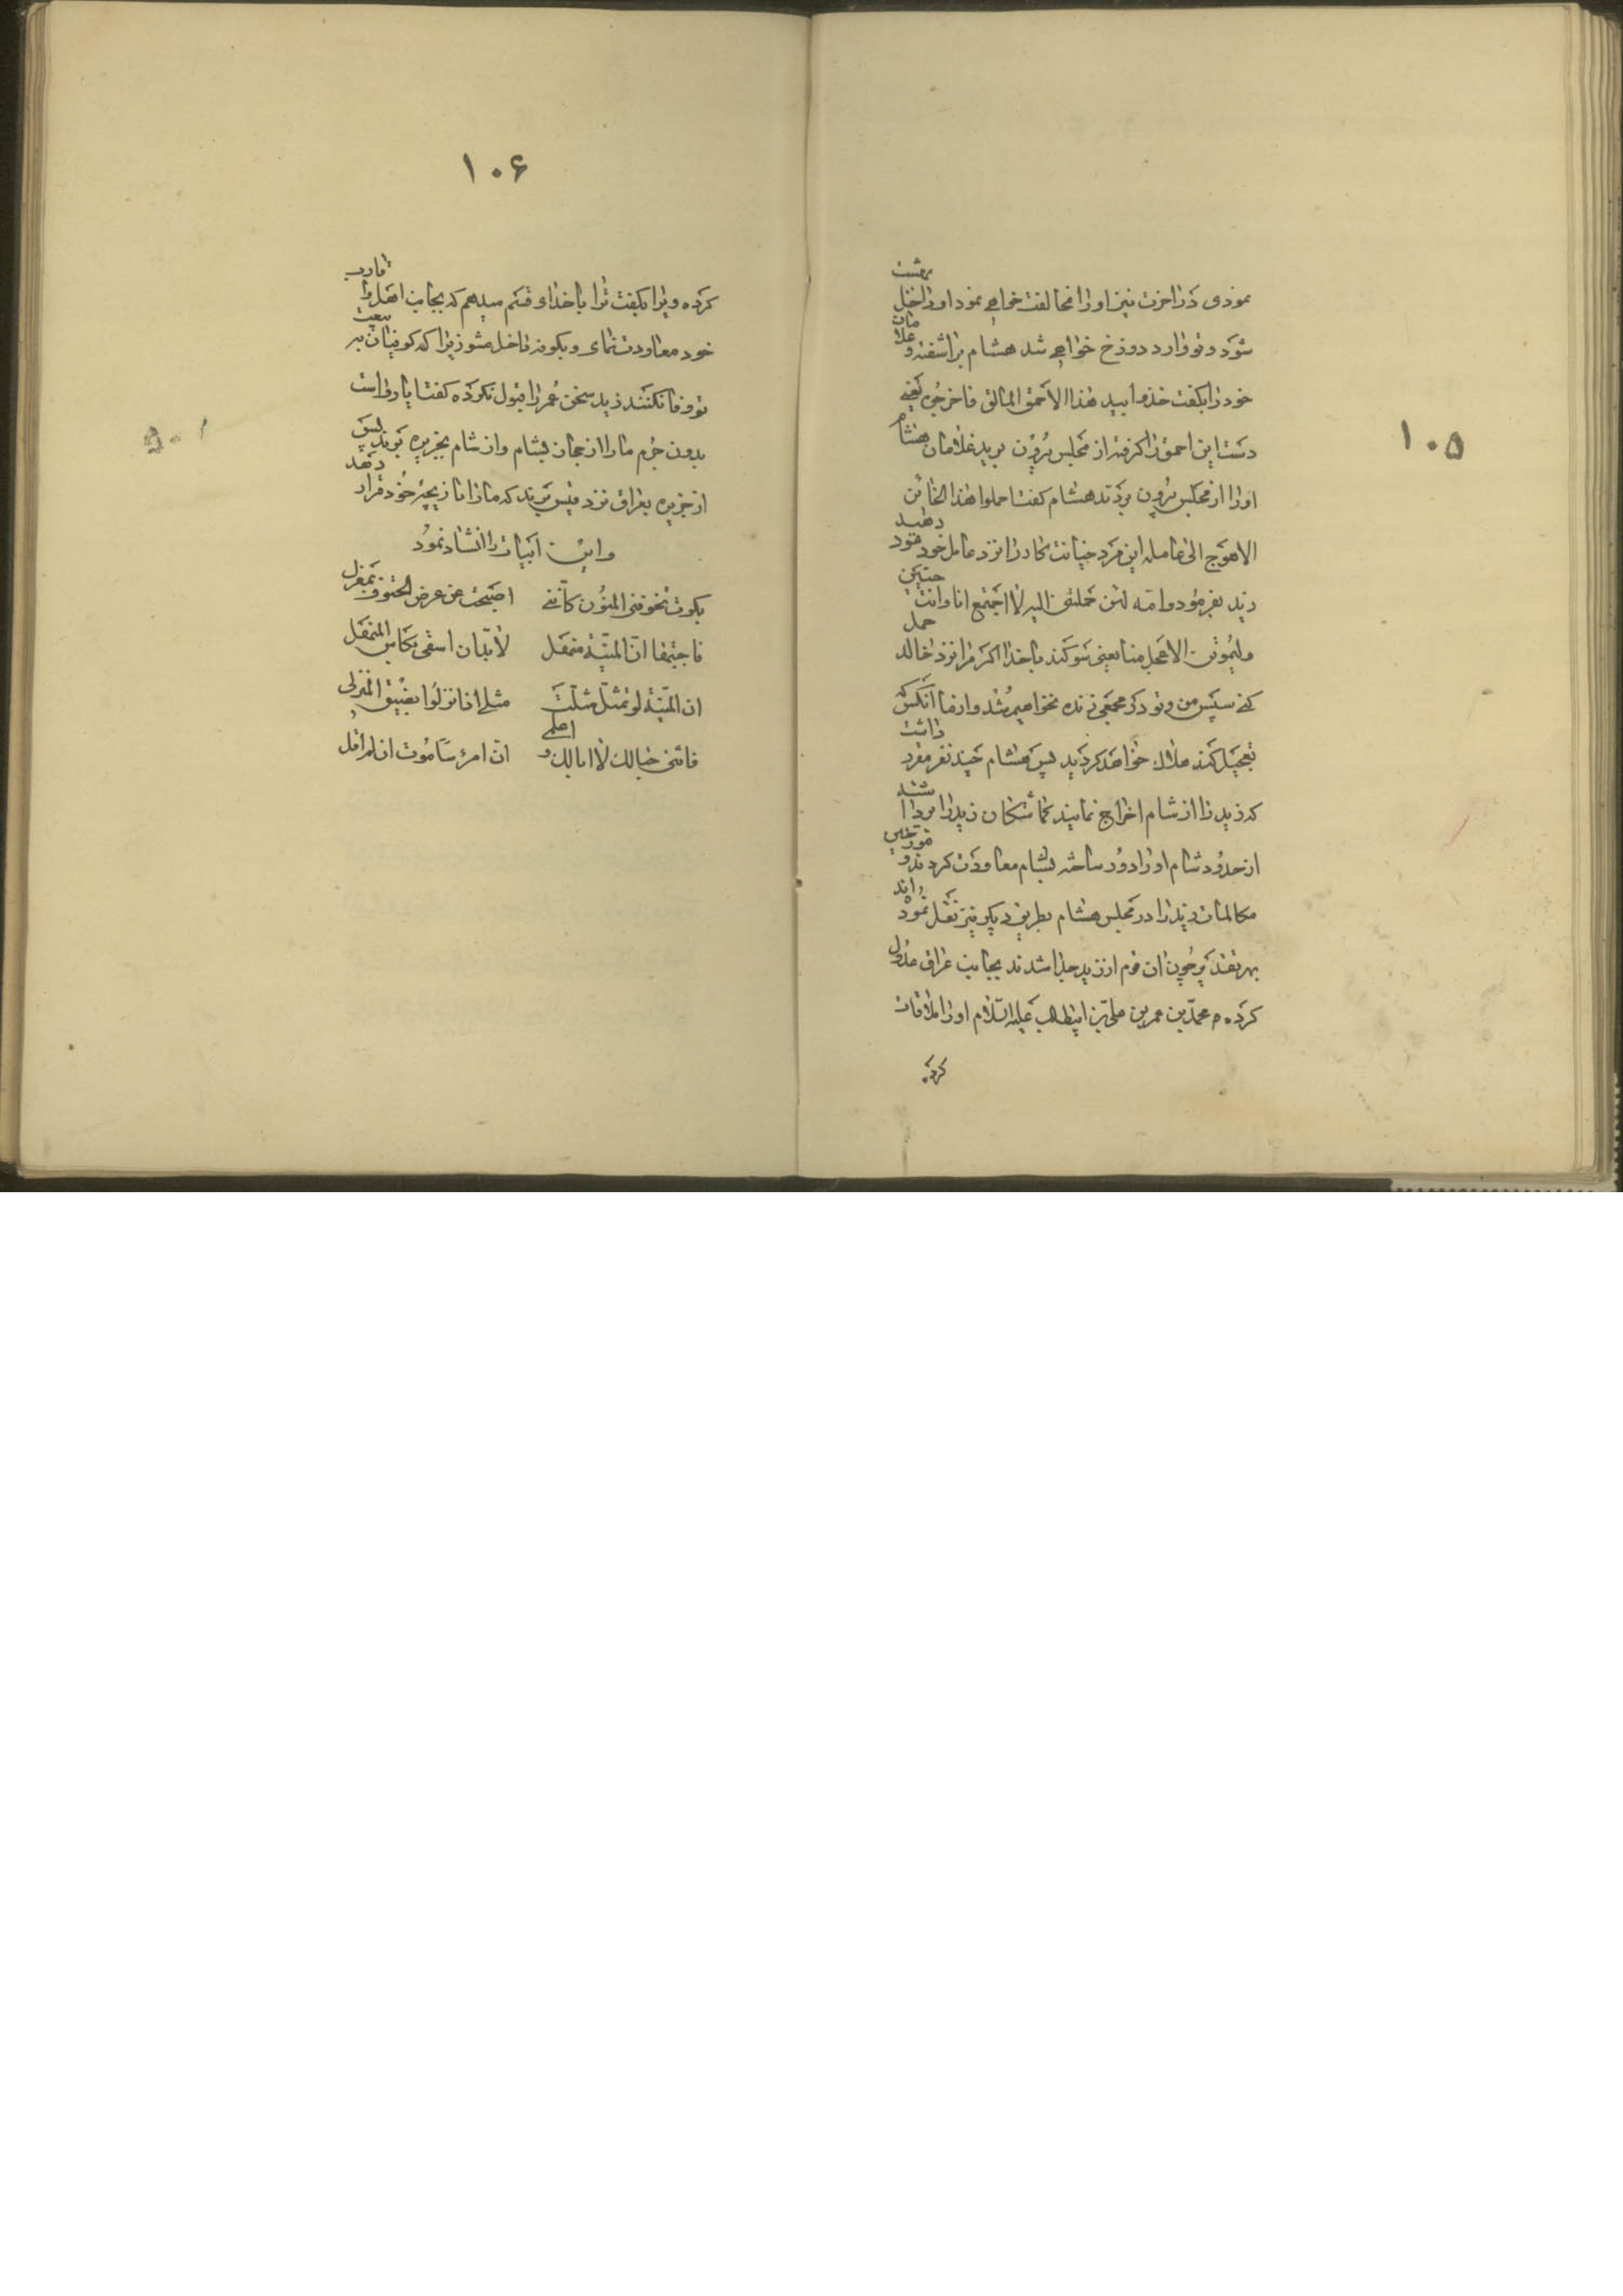 ۱۰۵
نمودی در اخرت نیز او را مخالفت خواهی نمود او داخل بهشت
شود و تو وارد دوزخ خواهی شد هشام براشفته و غلامان
خود را بگفت خذوا بید هذا الاحمق المائق فاخرجوه یعنی
دست این احمق را گرفته از مجلس برون برید غلامان هشام
او را از مجلس برون بردند هشام گفت احملوا هذا الخائن
الاهوج الی عامله این مرد خیانت کار را نزد عامل خود عودت دهید
زید بفرمود والله لئن حملتنی الیه لا اجتمع انا وانت حیین
ولیموتن الاعجل منا یعنی سوگند باخدا اگر مرا نزد خالد حمل
کنی سپس من و تو در مجمعی زنده نخواهیم شد و از ما انکس که
تعجیل کند هلاک خواهد گردید پس هشام چند نفر مقرر داشت
که زید را از شام اخراج نمایند گماشتگان زید را برداشته
از حدود شام او را دور ساخته بشام معاودت کردند و مورخین
مکالمات زید را در مجلس هشام بطریق دیگر نیز نقل نموده‌اند
بهر تقدیر چون ان قوم از زید جدا شدند بجانب عراق عدول
کرده و محمد بن عمر بن علی بن ابیطالب علیه السلام او را ملاقات
کرده
۱۰۶
کرده ویرا بگفت ترا باخدای قسم میدهم که بجانب اهل و اقارب
خود معاودت نمای و بکوفه داخل مشو زیرا که کوفیان به بیعت
تو وفا نکنند زید سخن عمر را قبول نکرده گفت ایا روا است
بدون جرم ما را از حجاز بشام و از شام بجزیره برند پس
از جزیره بعراق نزد قیس برند که ما را بازیچه خود قرار دهد
و این ابیات را انشاد نمود
بکرت تخوفنی المنون کاننی اصبحت عن عرض الحتوف بمعزل
فاجبتها ان المنیة منهل لابد ان اسقی بکاس المنهل
ان المنیة لو تمثل مثلت مثلی اذا نزلوا بضیق المنزل
فاثنی حبالک لا ابالک و اعلمی ان امرء ساموت ان لم اقتل